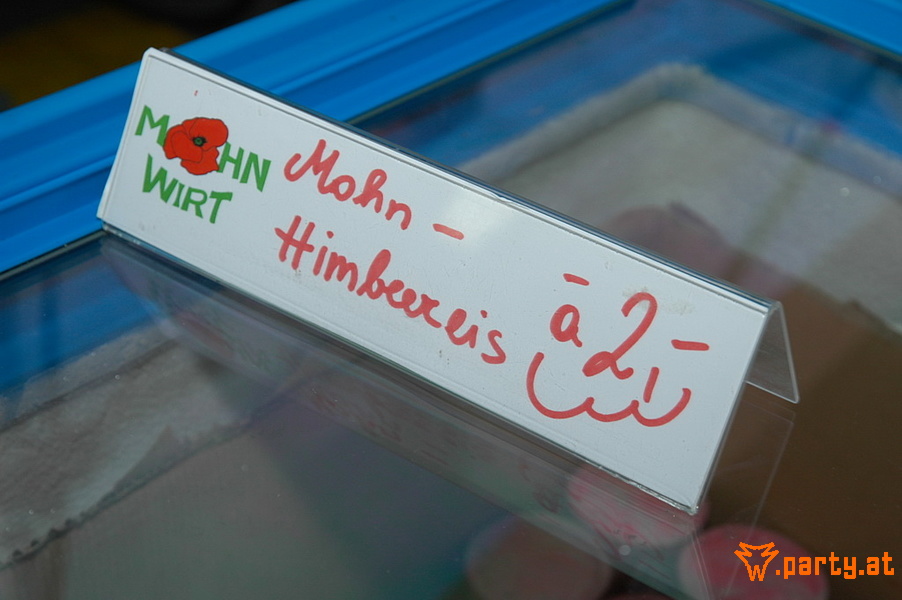 MOHN
WIRT
Mohn-
Himbeereis
à 2,-
W.party.at